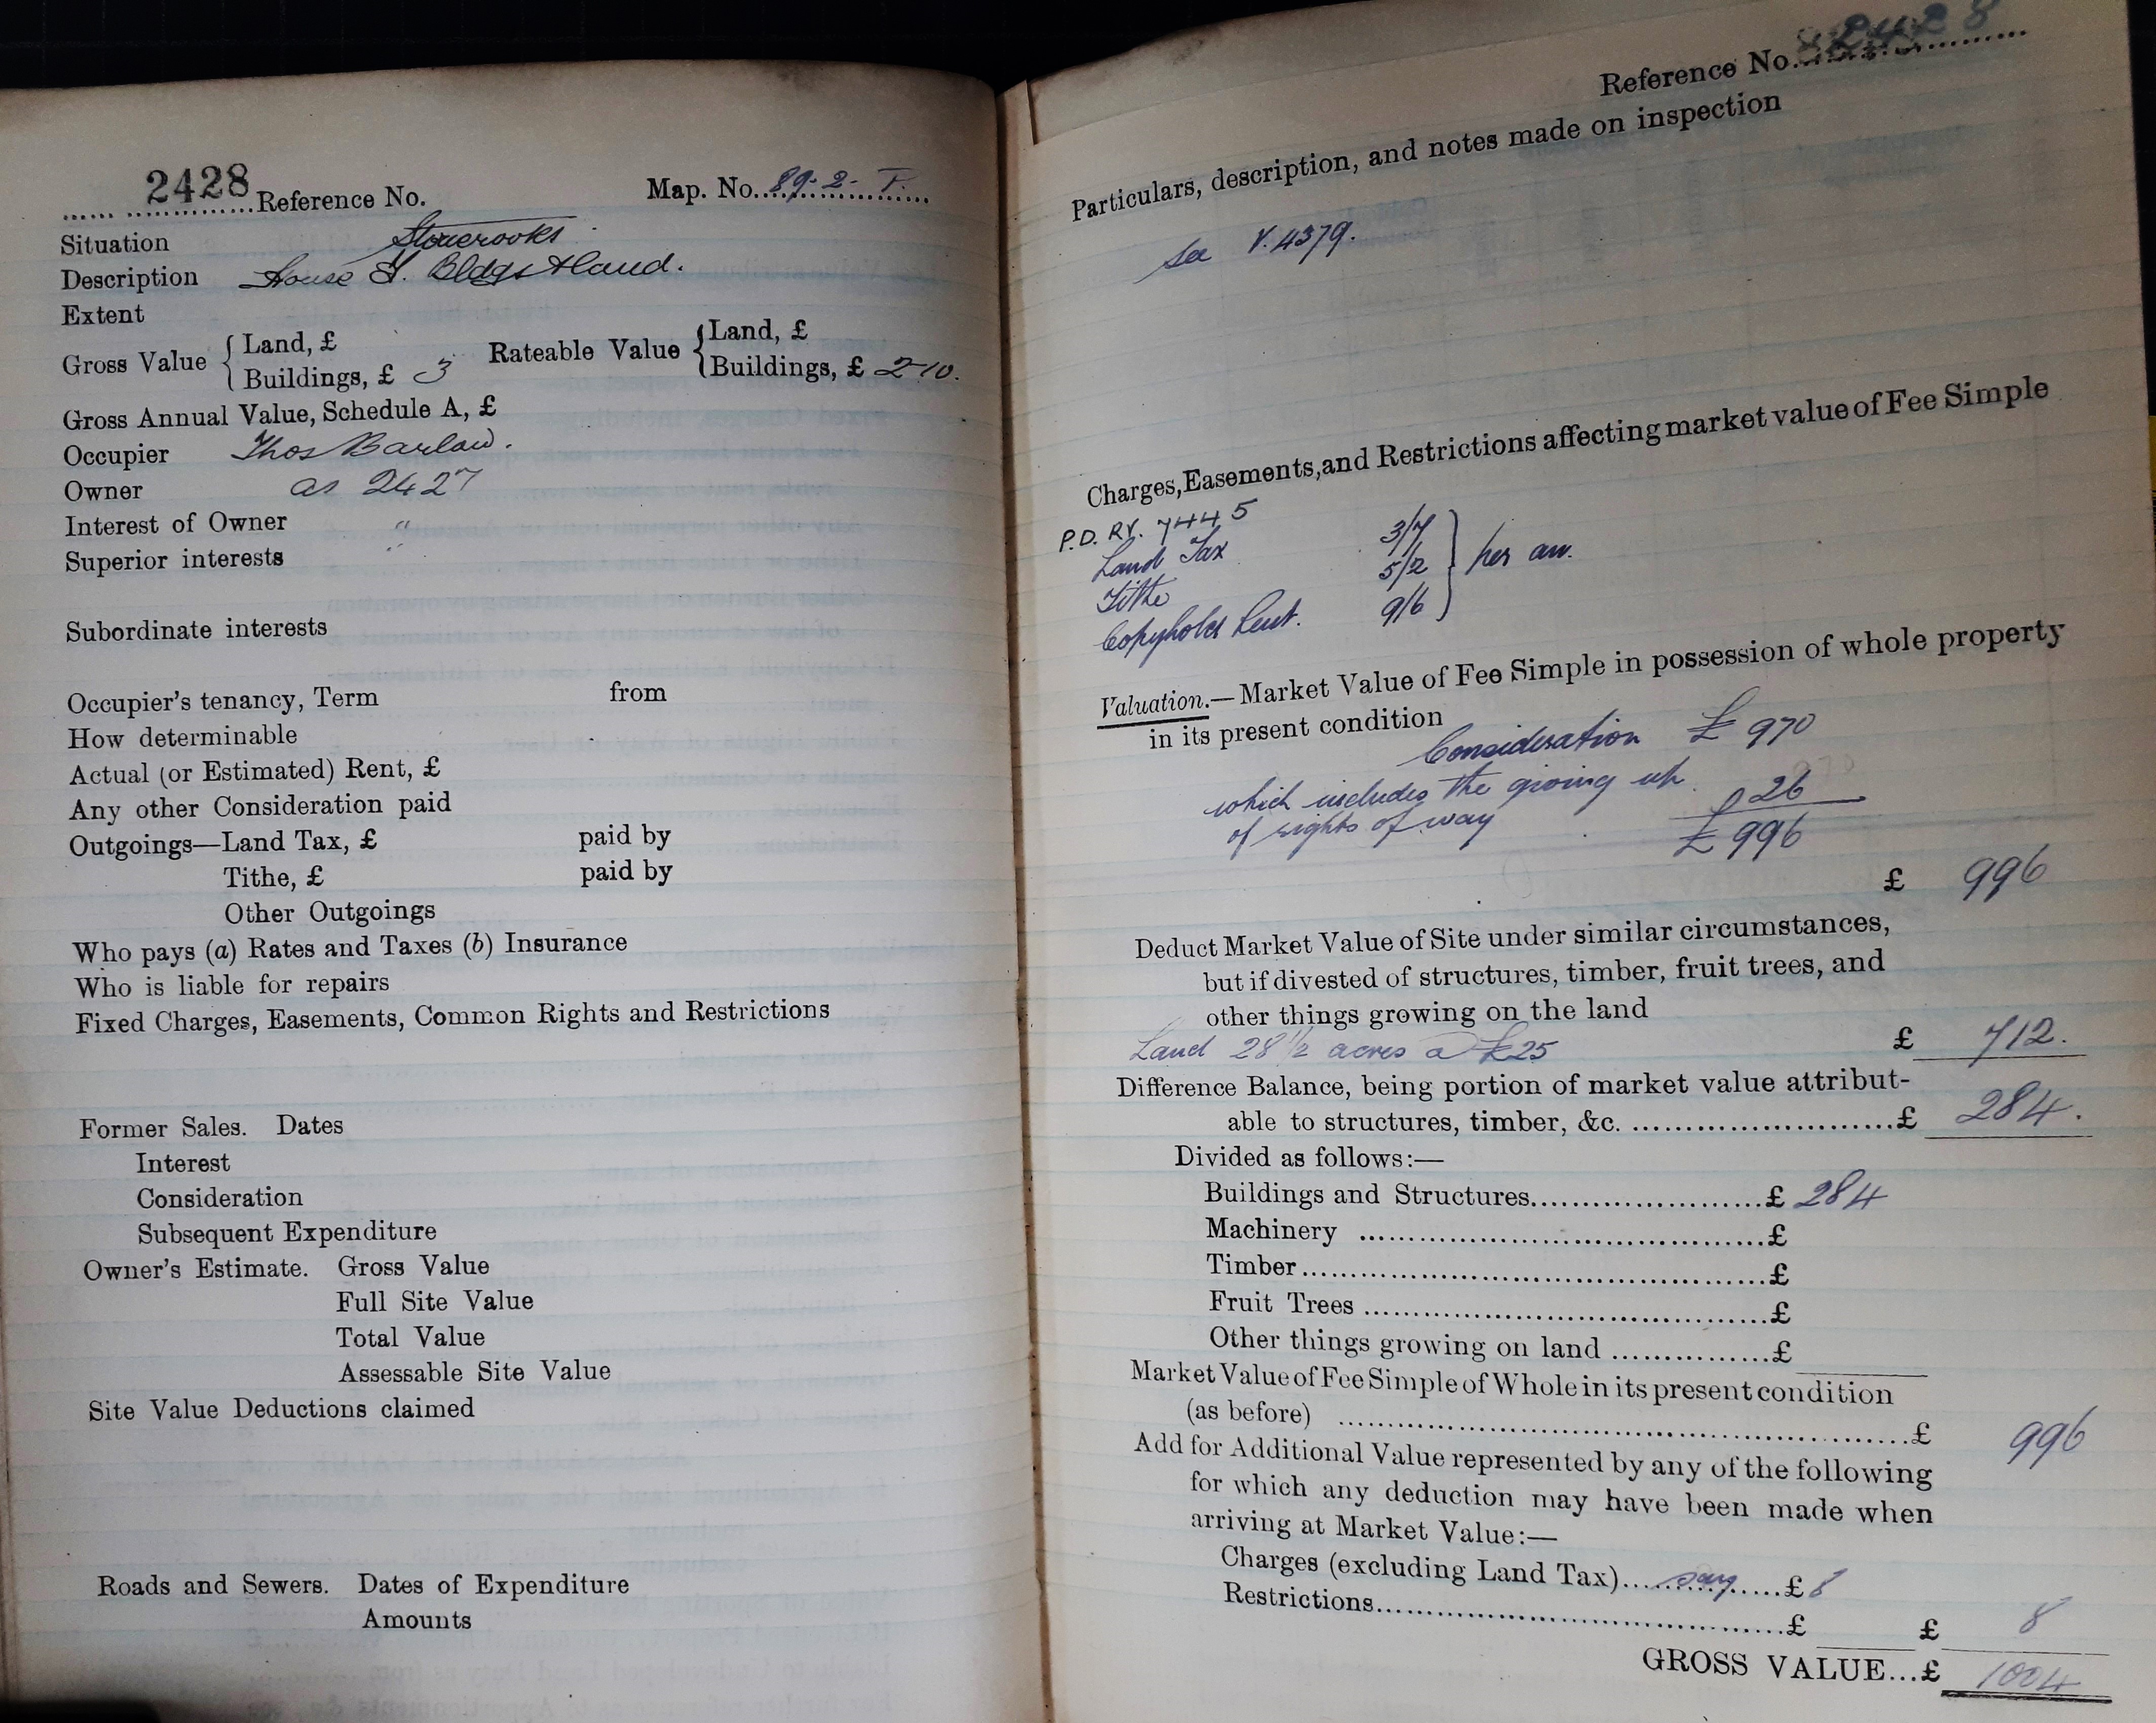 2428 Reference No. Map. No. 89.2.
Situation
Description House & Bldgs & land.
Extent
Gross Value { Land, £ Rateable Value { Land, £
Buildings, £ 3 Buildings, £ 2-10.
Gross Annual Value, Schedule A, £
Occupier Thos Barlow.
Owner as 2427
Interest of Owner "
Superior interests "
Subordinate interests
Occupier's tenancy, Term from
How determinable
Actual (or Estimated) Rent, £
Any other Consideration paid
Outgoings—Land Tax, £ paid by
Tithe, £ paid by
Other Outgoings
Who pays (a) Rates and Taxes (b) Insurance
Who is liable for repairs
Fixed Charges, Easements, Common Rights and Restrictions
Former Sales. Dates
Interest
Consideration
Subsequent Expenditure
Owner's Estimate. Gross Value
Full Site Value
Total Value
Assessable Site Value
Site Value Deductions claimed
Roads and Sewers. Dates of Expenditure
Amounts
Reference No. 2428
Particulars, description, and notes made on inspection
See V. 4379.
Charges, Easements, and Restrictions affecting market value of Fee Simple
P.D. RV. 7445
Land Tax 3/7
Tithe 5/2 } per an.
Copyholes Rent. 9/6
Valuation.—Market Value of Fee Simple in possession of whole property
in its present condition
Consideration £ 970
which includes the giving up 26
of rights of way £ 996
£ 996
Deduct Market Value of Site under similar circumstances,
but if divested of structures, timber, fruit trees, and
other things growing on the land
Land 28 1/2 acres a £25 £ 712.
Difference Balance, being portion of market value attribut-
able to structures, timber, &c. £ 284.
Divided as follows:—
Buildings and Structures £ 284
Machinery £
Timber £
Fruit Trees £
Other things growing on land £
Market Value of Fee Simple of Whole in its present condition
(as before) £ 996
Add for Additional Value represented by any of the following
for which any deduction may have been made when
arriving at Market Value:—
Charges (excluding Land Tax) say £ 8
Restrictions £ £ 8
GROSS VALUE...£ 1004